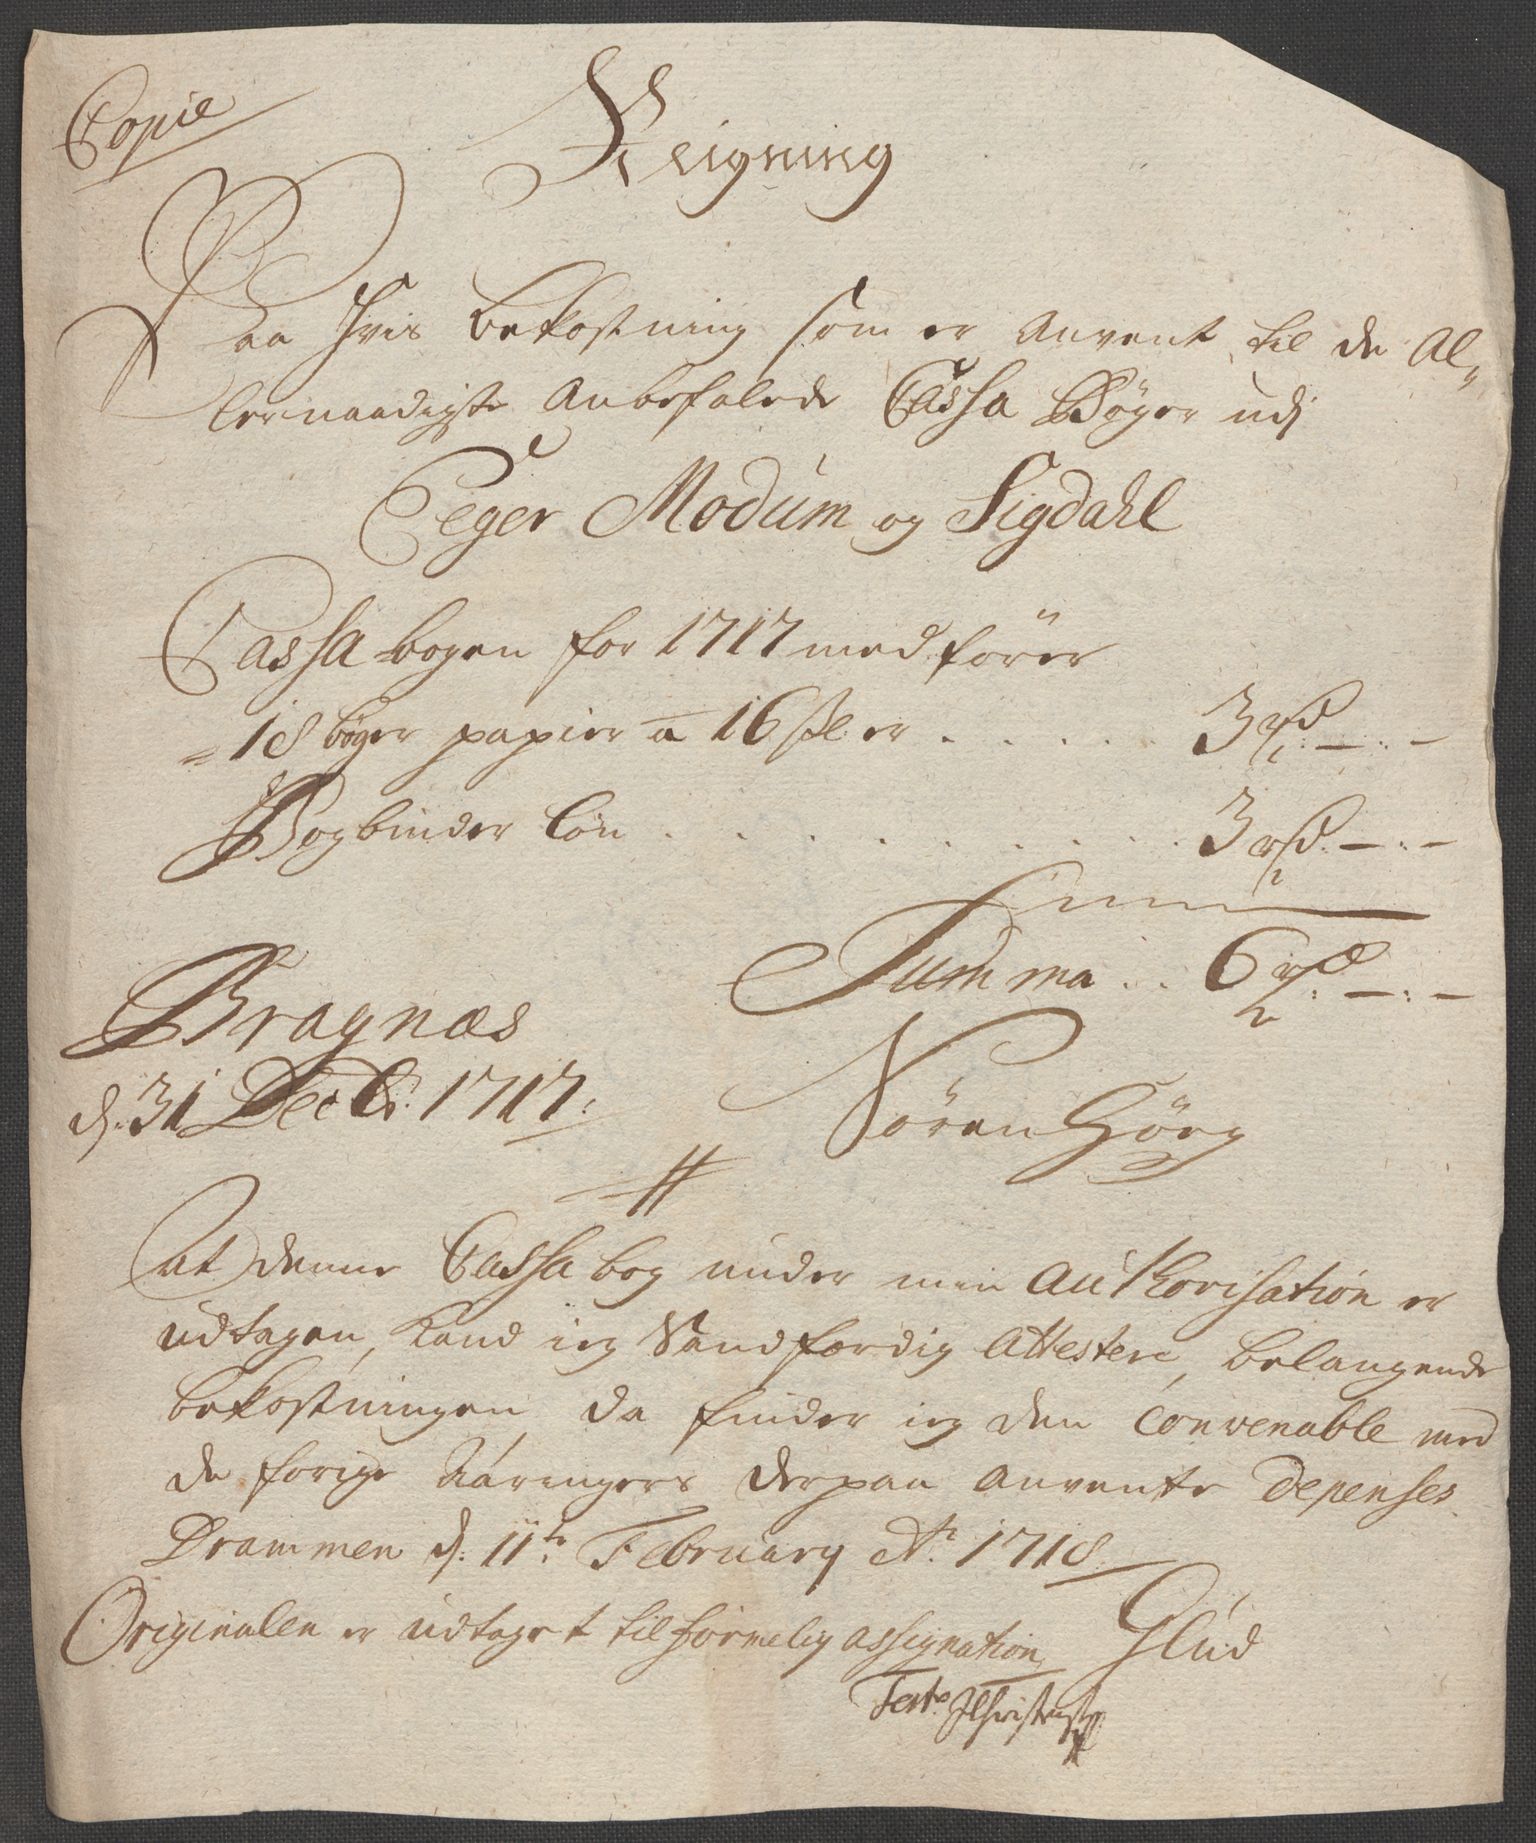 Copie
Reigning
Paa Hvis bekostning som er anvent til de Al„
lernaadigste anbefalede Cassa Bøger udj
Eger Modum og Sigdahl
Cassa bogen for 1717 medfører
18 bøger papier a 16 sk er . . . . . 3 rd: — : —
Bogbinder løn . . . . . . . . . 3 rd: — : —
Summa . . 6 rd: — : —
Bragnæs
d: 31 Decbr: 1717.
Sören Görg
At denne Cassa bog under min authorisation er
udtagen, kand ieg Sandfærdig attestere, belangende
bekostningen da finder ieg den convenable med
de forige Aaringers derpaa anvente depenses.
Drammen d: 11te February Ao 1718
Glud
Originalen er udtaget til formelig assignation,
Testor JChristens